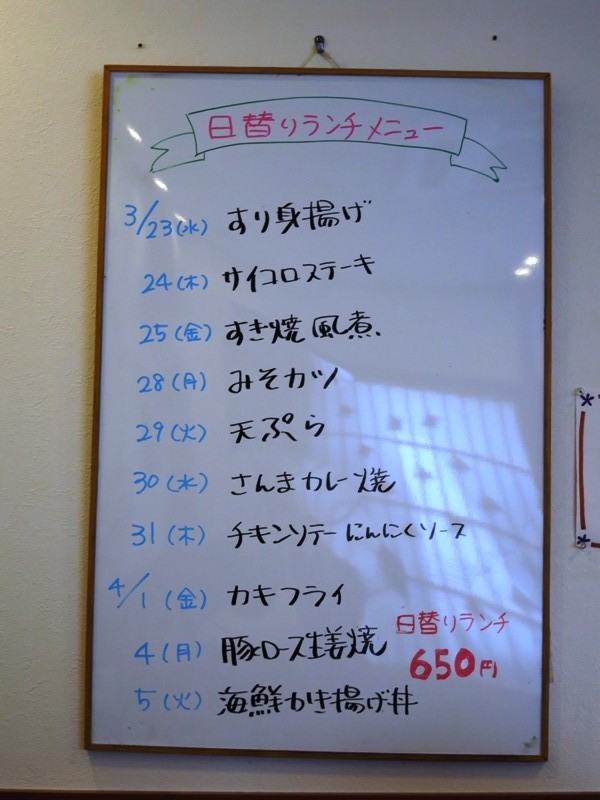 日替りランチメニュー
3/23(水) すり身揚げ
24(木) サイコロステーキ
25(金) すき焼風煮
28(月) みそカツ
29(火) 天ぷら
30(水) さんまカレー焼
31(木) チキンソテーにんにくソース
4/1(金) カキフライ
4(月) 豚ロース生姜焼
5(火) 海鮮かき揚げ丼
日替りランチ
650円